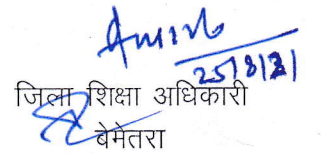 25/8/21
जिला शिक्षा अधिकारी
बेमेतरा